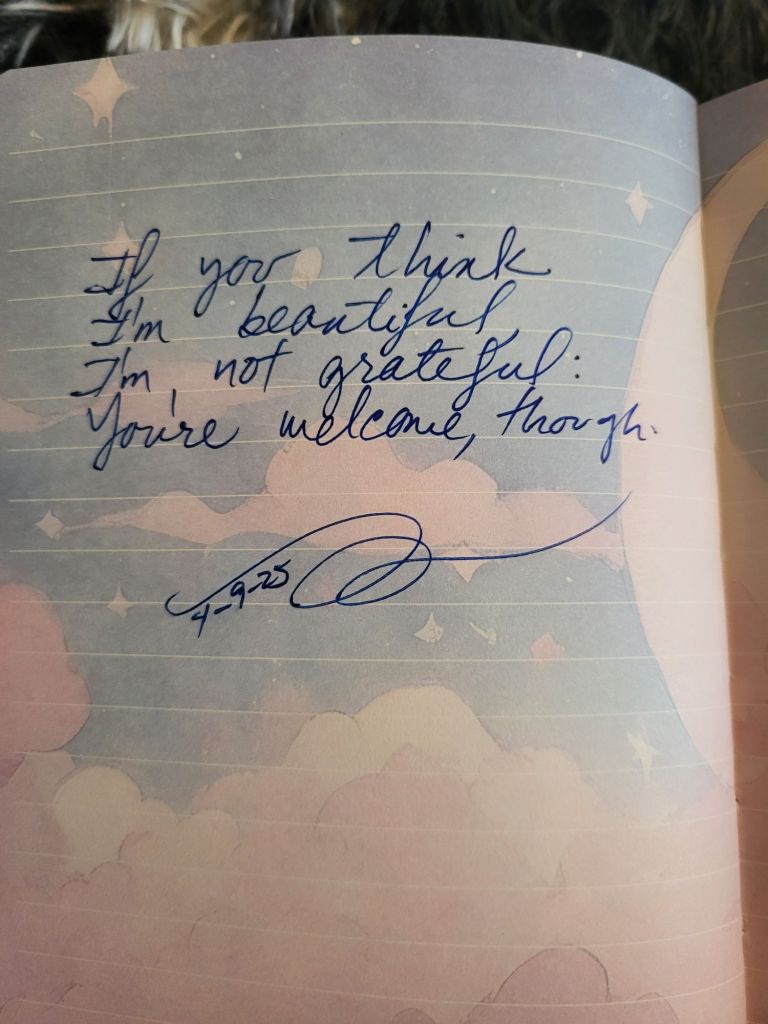 If you think
I'm beautiful,
I'm not grateful:
You're welcome, though.
4-9-25